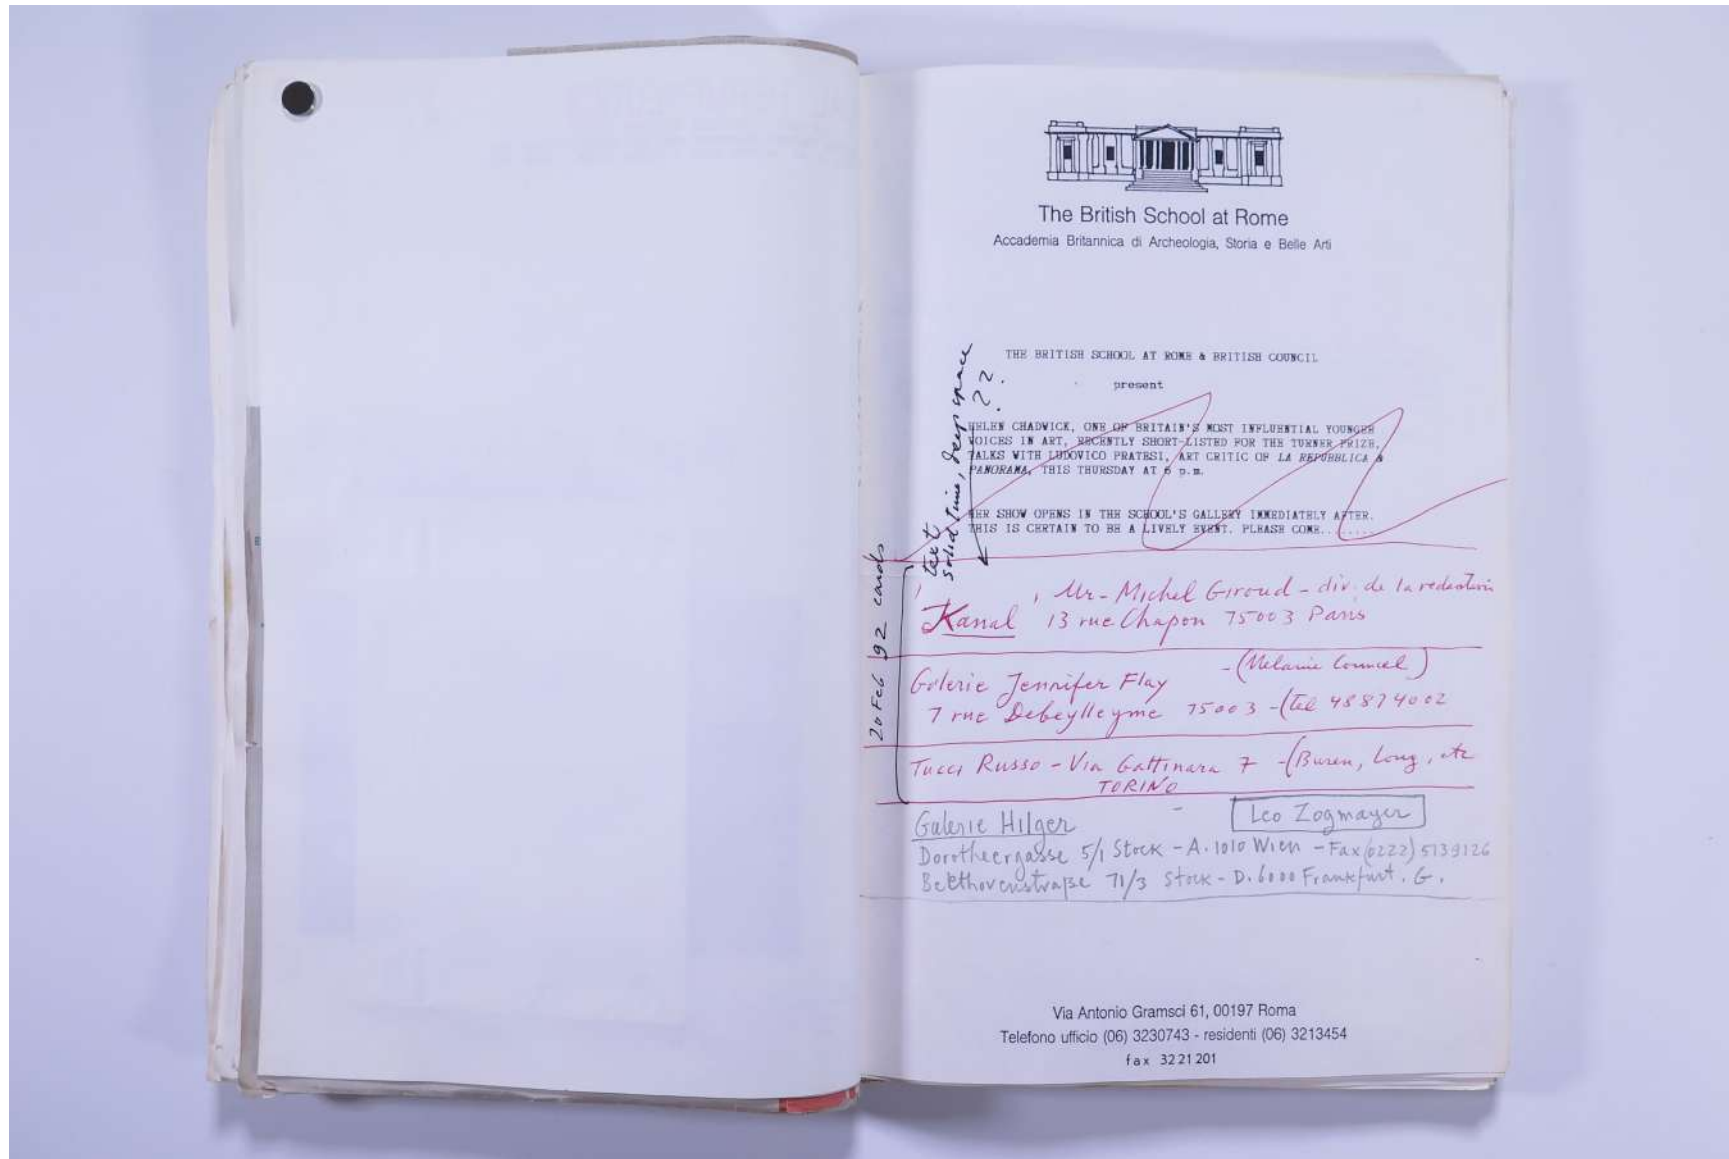 The British School at Rome
Accademia Britannica di Archeologia, Storia e Belle Arti
THE BRITISH SCHOOL AT ROME & BRITISH COUNCIL
present
HELEN CHADWICK, ONE OF BRITAIN'S MOST INFLUENTIAL YOUNGER
VOICES IN ART, RECENTLY SHORT-LISTED FOR THE TURNER PRIZE,
TALKS WITH LUDOVICO PRATESI, ART CRITIC OF LA REPUBBLICA &
PANORAMA, THIS THURSDAY AT 6 p.m.
HER SHOW OPENS IN THE SCHOOL'S GALLERY IMMEDIATELY AFTER.
THIS IS CERTAIN TO BE A LIVELY EVENT. PLEASE COME........
text
solid time, deep space
??.
20 Feb 92 cards
Mr - Michel Giroud - div. de la redaction
Kanal 13 rue Chapon 75003 Paris
Galerie Jennifer Flay - (Melanie Counsel)
7 rue Debeylleyme 75003 - (tel 48874002
Tucci Russo - Via Gattinara 7 - (Buren, Long, etc
TORINO
Galerie Hilger - Leo Zogmayer
Dorotheergasse 5/1 Stock - A. 1010 Wien - Fax (0222) 5139126
Beethovenstraße 71/3 Stock - D. 6000 Frankfurt. G.
Via Antonio Gramsci 61, 00197 Roma
Telefono ufficio (06) 3230743 - residenti (06) 3213454
fax 3221201